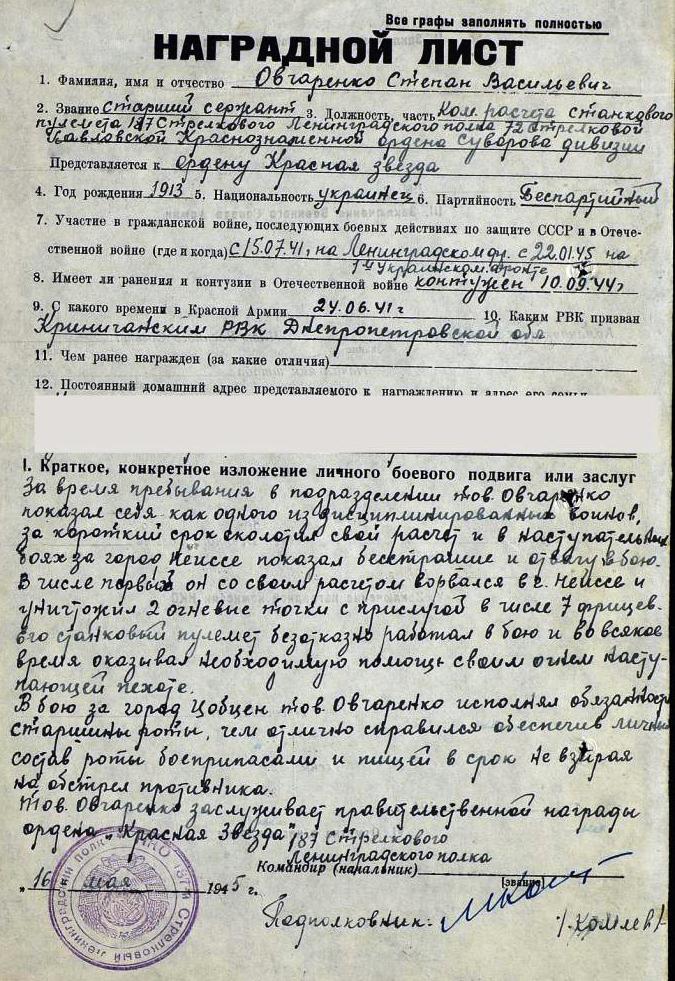 Все графы заполнять полностью
НАГРАДНОЙ ЛИСТ
1. Фамилия, имя и отчество Овчаренко Степан Васильевич
2. Звание старший сержант 3. Должность, часть Ком. расчета станкового
пулемета 187 Стрелкового Ленинградского полка 72 Стрелковой
Павловской Краснознаменной ордена Суворова дивизии
Представляется к ордену Красная звезда
4. Год рождения 1913 5. Национальность украинец 6. Партийность Беспартийный
7. Участие в гражданской войне, последующих боевых действиях по защите СССР и в Отече-
ственной войне (где и когда) с 15.07.41, на Ленинградском фр. с 22.01.45 на
1ᵐ Украинском фронте
8. Имеет ли ранения и контузии в Отечественной войне контужен 10.09.44г
9. С какого времени в Красной Армии 24.06.41г 10. Каким РВК призван
Криничанским РВК Днепропетровской обл
11. Чем ранее награжден (за какие отличия)
12. Постоянный домашний адрес представляемого к награждению и адрес его семьи
I. Краткое, конкретное изложение личного боевого подвига или заслуг
За время пребывания в подразделении тов. Овчаренко
показал себя как одного из дисциплинированных воинов,
за короткий срок сколотил свой расчет и в наступательных
боях за город Нейссе показал бесстрашие и отвагу в бою.
В числе первый он со своим расчетом ворвался в г. Нейссе и
уничтожил 2 огневые точки с прислугой в числе 7 фрицев.
Его станковый пулемет безотказно работал в бою и во всякое
время оказывал необходимую помощь своим огнем насту-
пающей пехоте.
В бою за город Цобцен тов. Овчаренко исполнял обязанности
старшины роты, чем отлично справился обеспечив личный
состав роты боеприпасами и пищей в срок не взирая
на обстрел противника.
Тов. Овчаренко заслуживает правительственной награды
ордена „Красная Звезда"
187 Стрелкового
Ленинградского полка
Командир (начальник)
(звание)
„16 мая 1945 г.
Подполковник: /Комлев/
НКО 187й Стрелковый Ленинградский полк